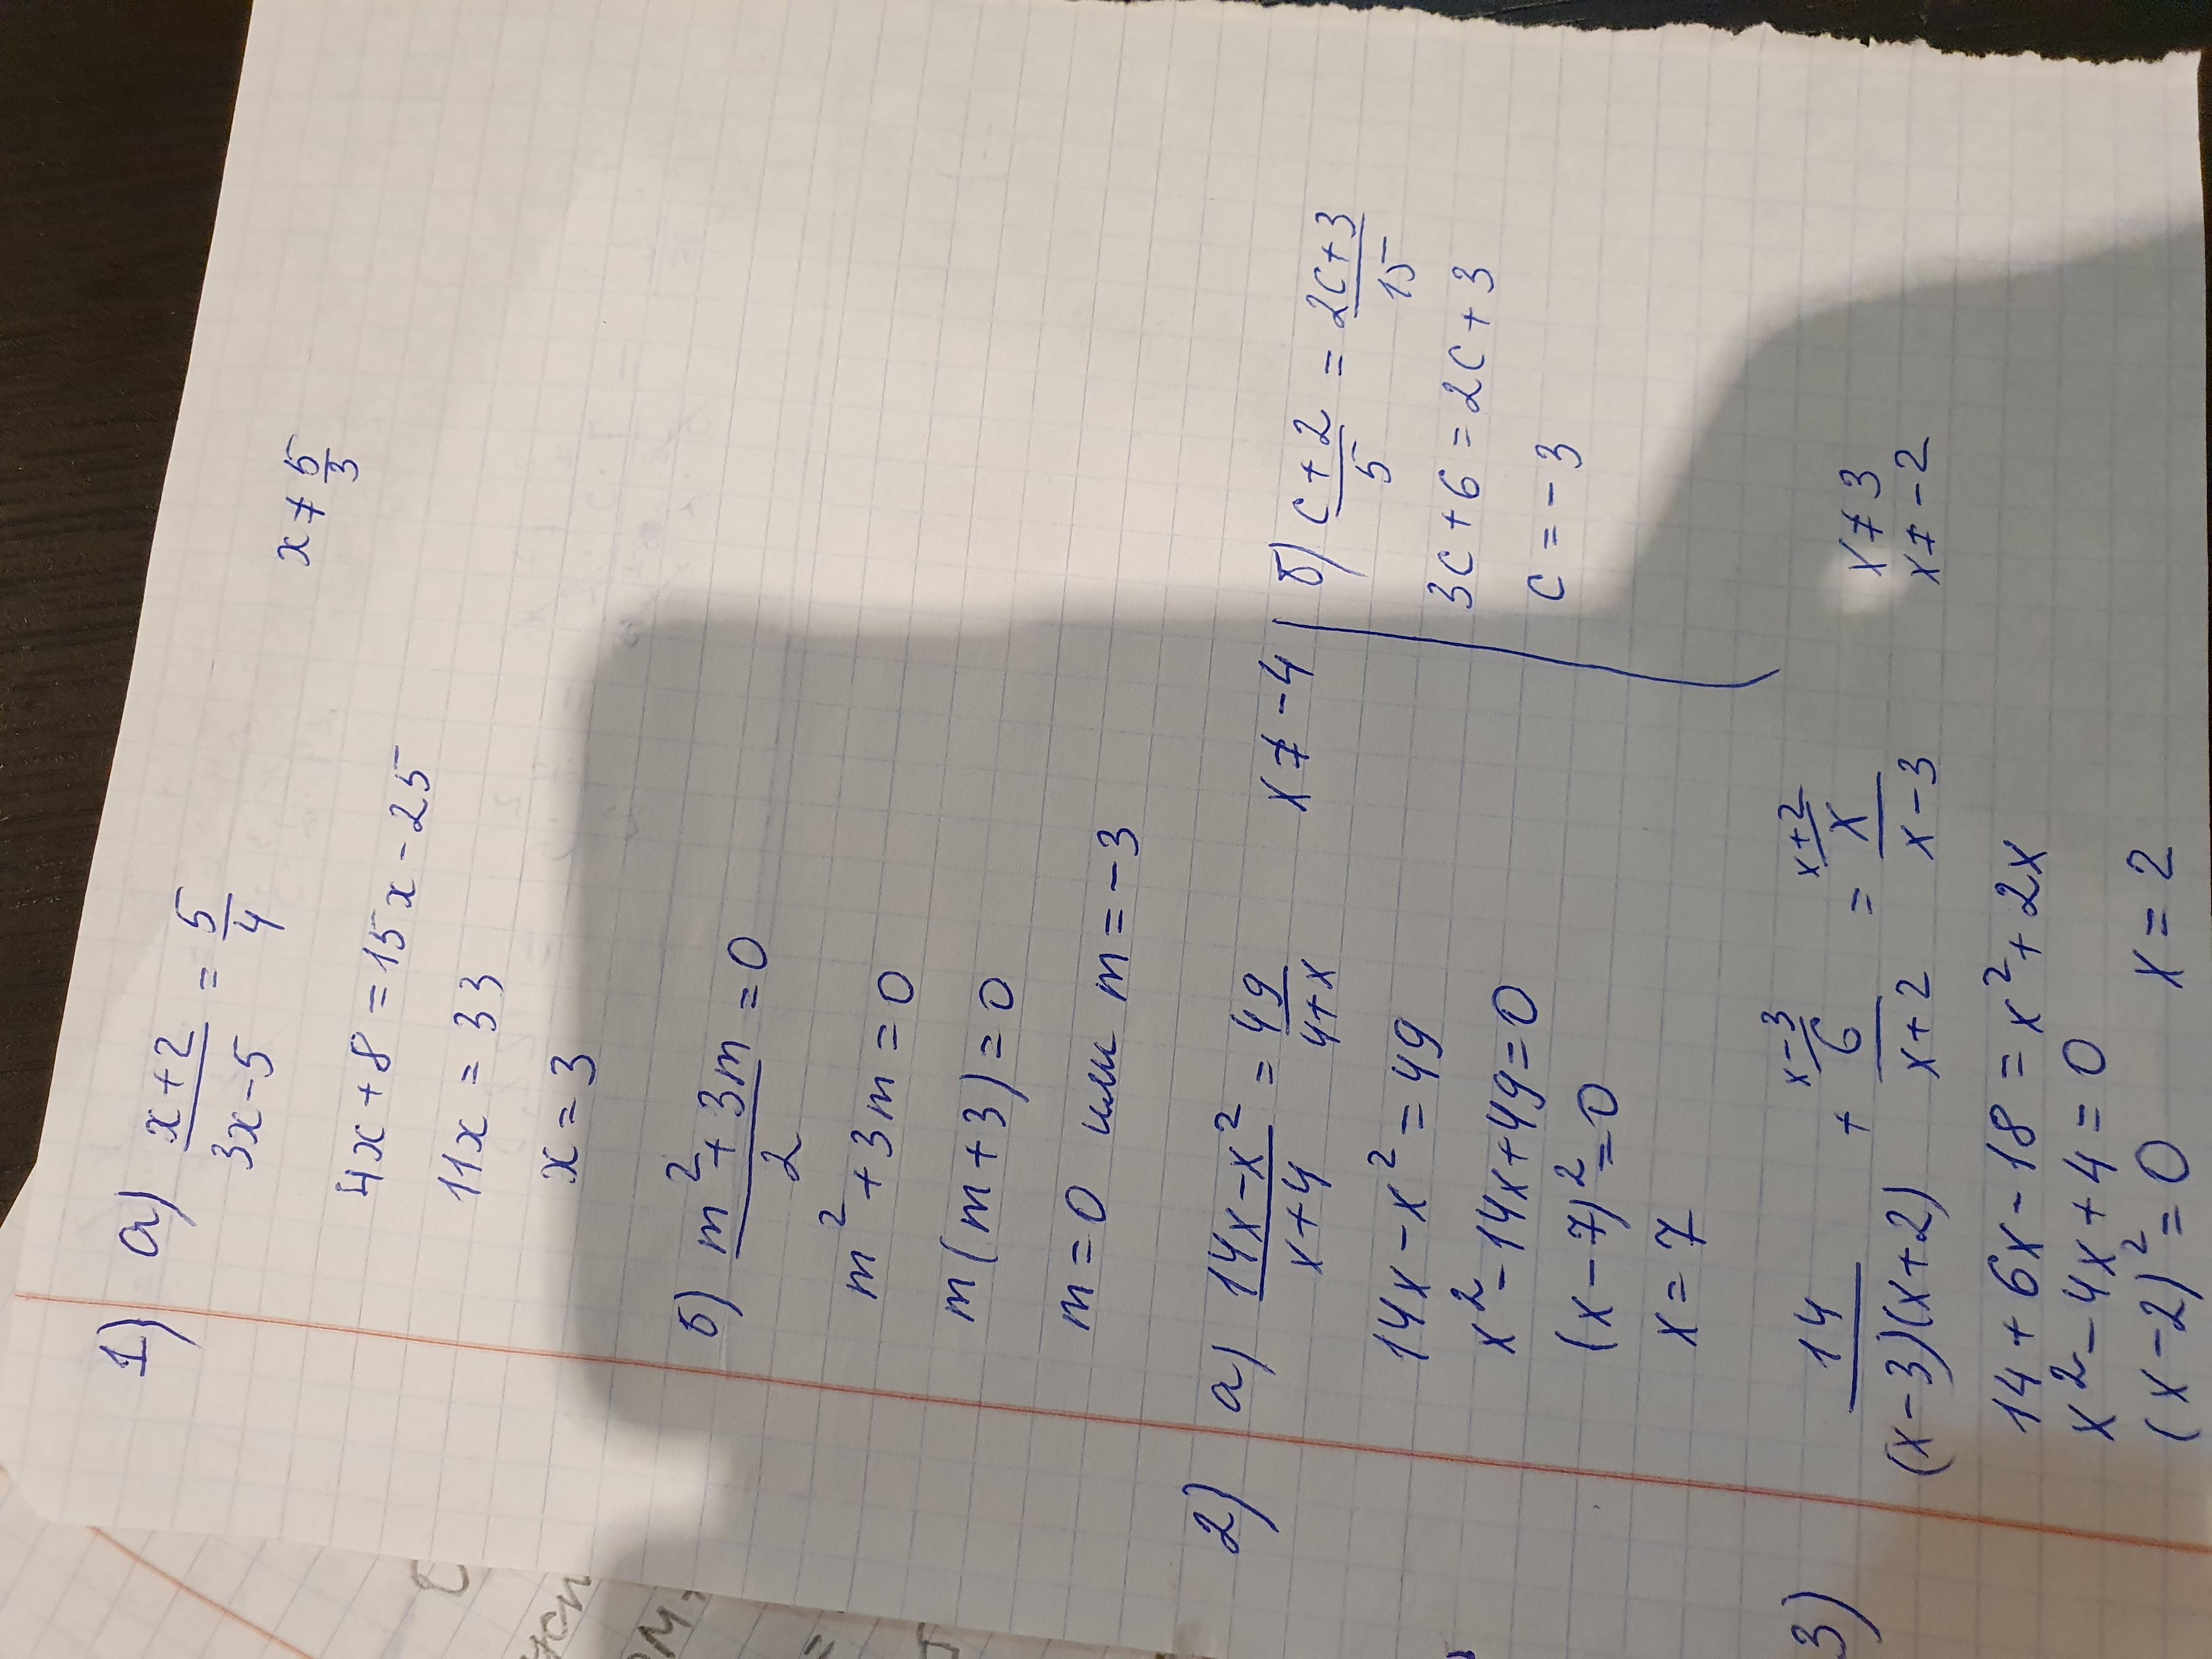 1) а) (x+2)/(3x-5) = 5/4
x ≠ 5/3
4x+8=15x-25
11x = 33
x=3
б) (m²+3m)/2 = 0
m²+3m=0
m(m+3)=0
m=0 или m=-3
2) а) (14x-x²)/(x+4) = 49/(4+x) x ≠ -4
14x-x²=49
x²-14x+49=0
(x-7)²=0
x=7
б) (c+2)/5 = (2c+3)/15
3c+6=2c+3
c=-3
x-3 x+2
3) 14/((x-3)(x+2)) + 6/(x+2) = x/(x-3) x ≠ 3
x ≠ -2
14+6x-18=x²+2x
x²-4x+4=0
(x-2)²=0 x=2